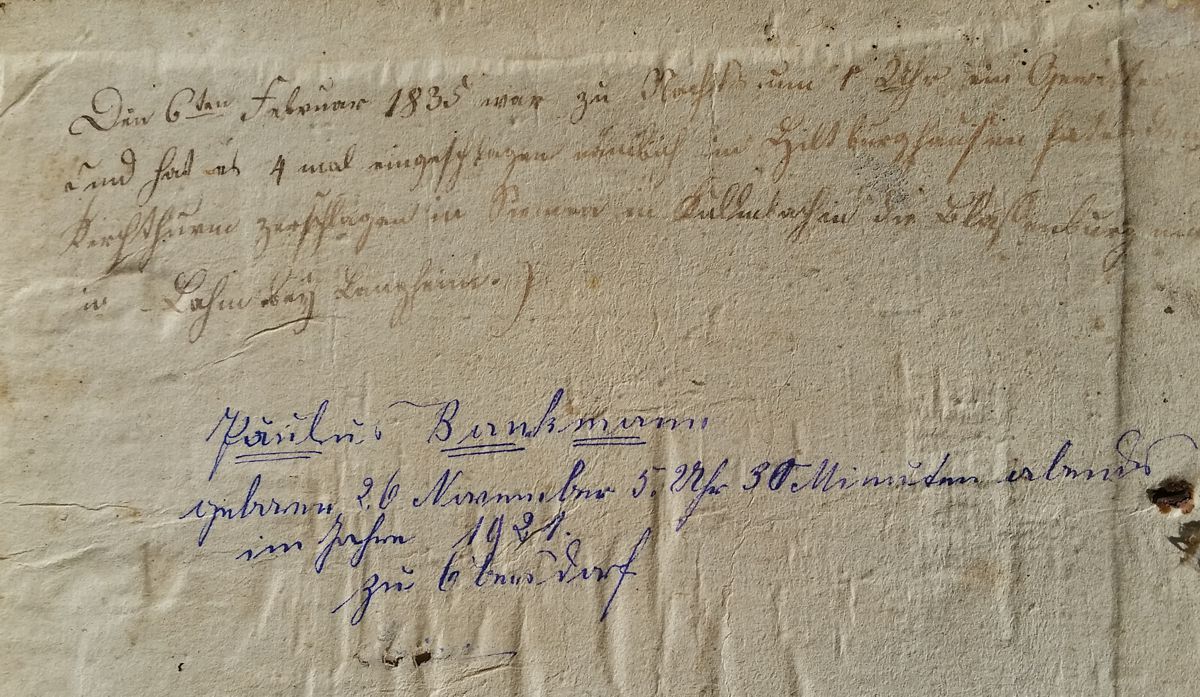 Den 6ten Februar 1835 war zu Nachts um Uhr ein Gewitter
und hat es 4 mal eingeschlagen nämlich in Hiltburghausen hat es den
Kirchthurm zerschlagen in in Kulmbach in die Blassenburg
in Lahm bey Banzheim.
Paulus Bankmann
geboren 26 November 5. Uhr 30 Minuten abends
im Jahre 1921.
zu Ebersdorf